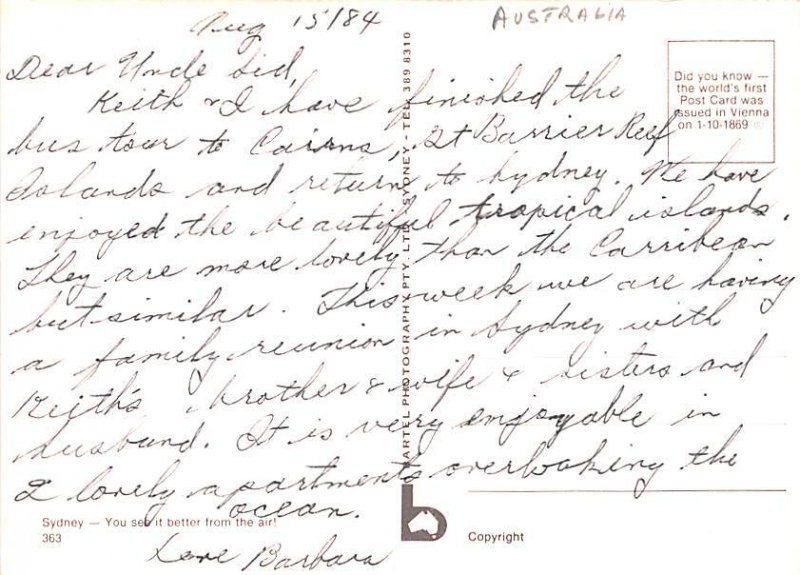 Aug 15/84
AUSTRALIA
Dear Uncle Sid,
Keith & I have finished the
bus tour to Cairns, Gt Barrier Reef
Islands and return to Sydney. We have
enjoyed the beautiful tropical islands.
They are more lovely than the Carribean
but similar. This week we are having
a family reunion in Sydney with
Keith's brother & wife & sisters and
husband. It is very enjoyable in
2 lovely apartments overlooking the
ocean.
Love Barbara
Did you know —
the world's first
Post Card was
issued in Vienna
on 1-10-1869
PHOTOGRAPHI PTY. LTD. SYDNEY - TEL. 389 8310
Sydney — You see it better from the air!
363
b
Copyright